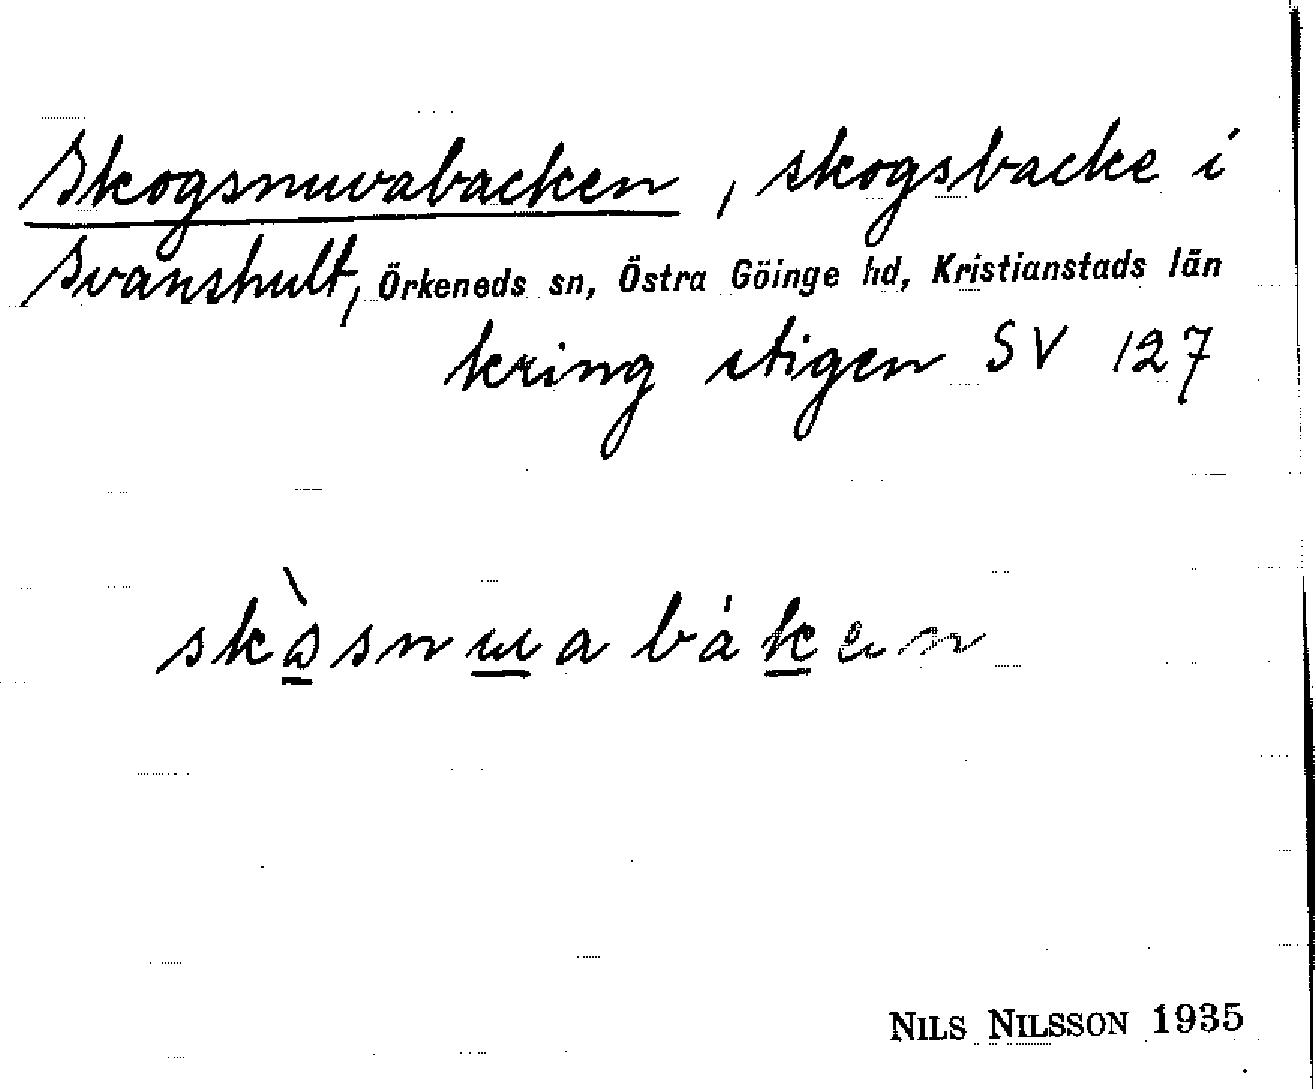 Skogsnuvabacken, skogsbacke i
Svanshult, Örkeneds sn, Östra Göinge hd, Kristianstads län
kring stigen SV 127
NILS NILSSON 1935